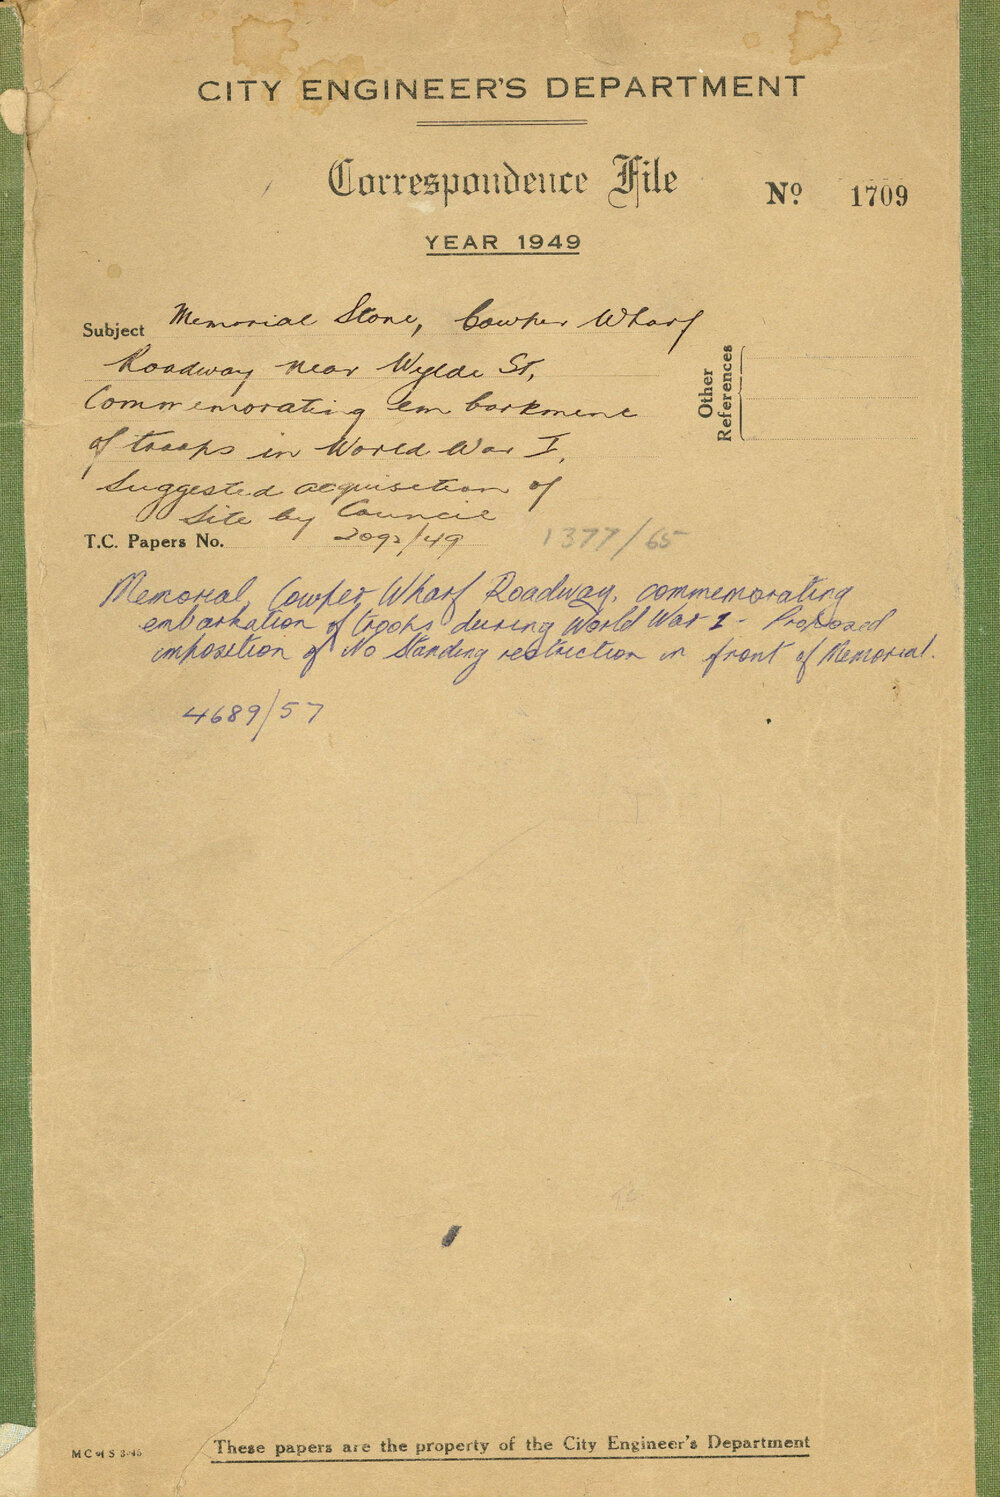 CITY ENGINEER'S DEPARTMENT
Correspondence File
Nº 1709
YEAR 1949
Subject Memorial Stone, Cowper Wharf
Roadway near Wylde St,
Commemorating embarkment
of troops in World War I,
Suggested acquisition of
Site by Council
Other References
T.C. Papers No. 2092/49 1377/65
Memorial, Cowper Wharf Roadway, commemorating
embarkation of troops during World War 1 - Proposed
imposition of No Standing restriction in front of Memorial.
4689/57
M C of S 3-45
These papers are the property of the City Engineer's Department